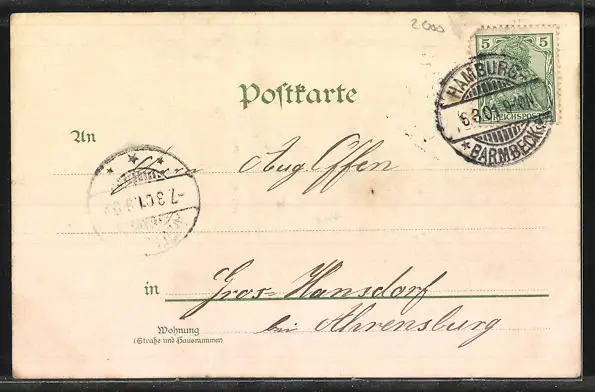 2000
5 5
REICHSPOST
HAMBURG-
6.3.01. 9-10N
* BARMBECK *
Postkarte
An
Herrn Aug Offen
-7.3.01.
in
Gros-Hansdorf
bei Ahrensburg
Wohnung
(Straße und Hausnummer)